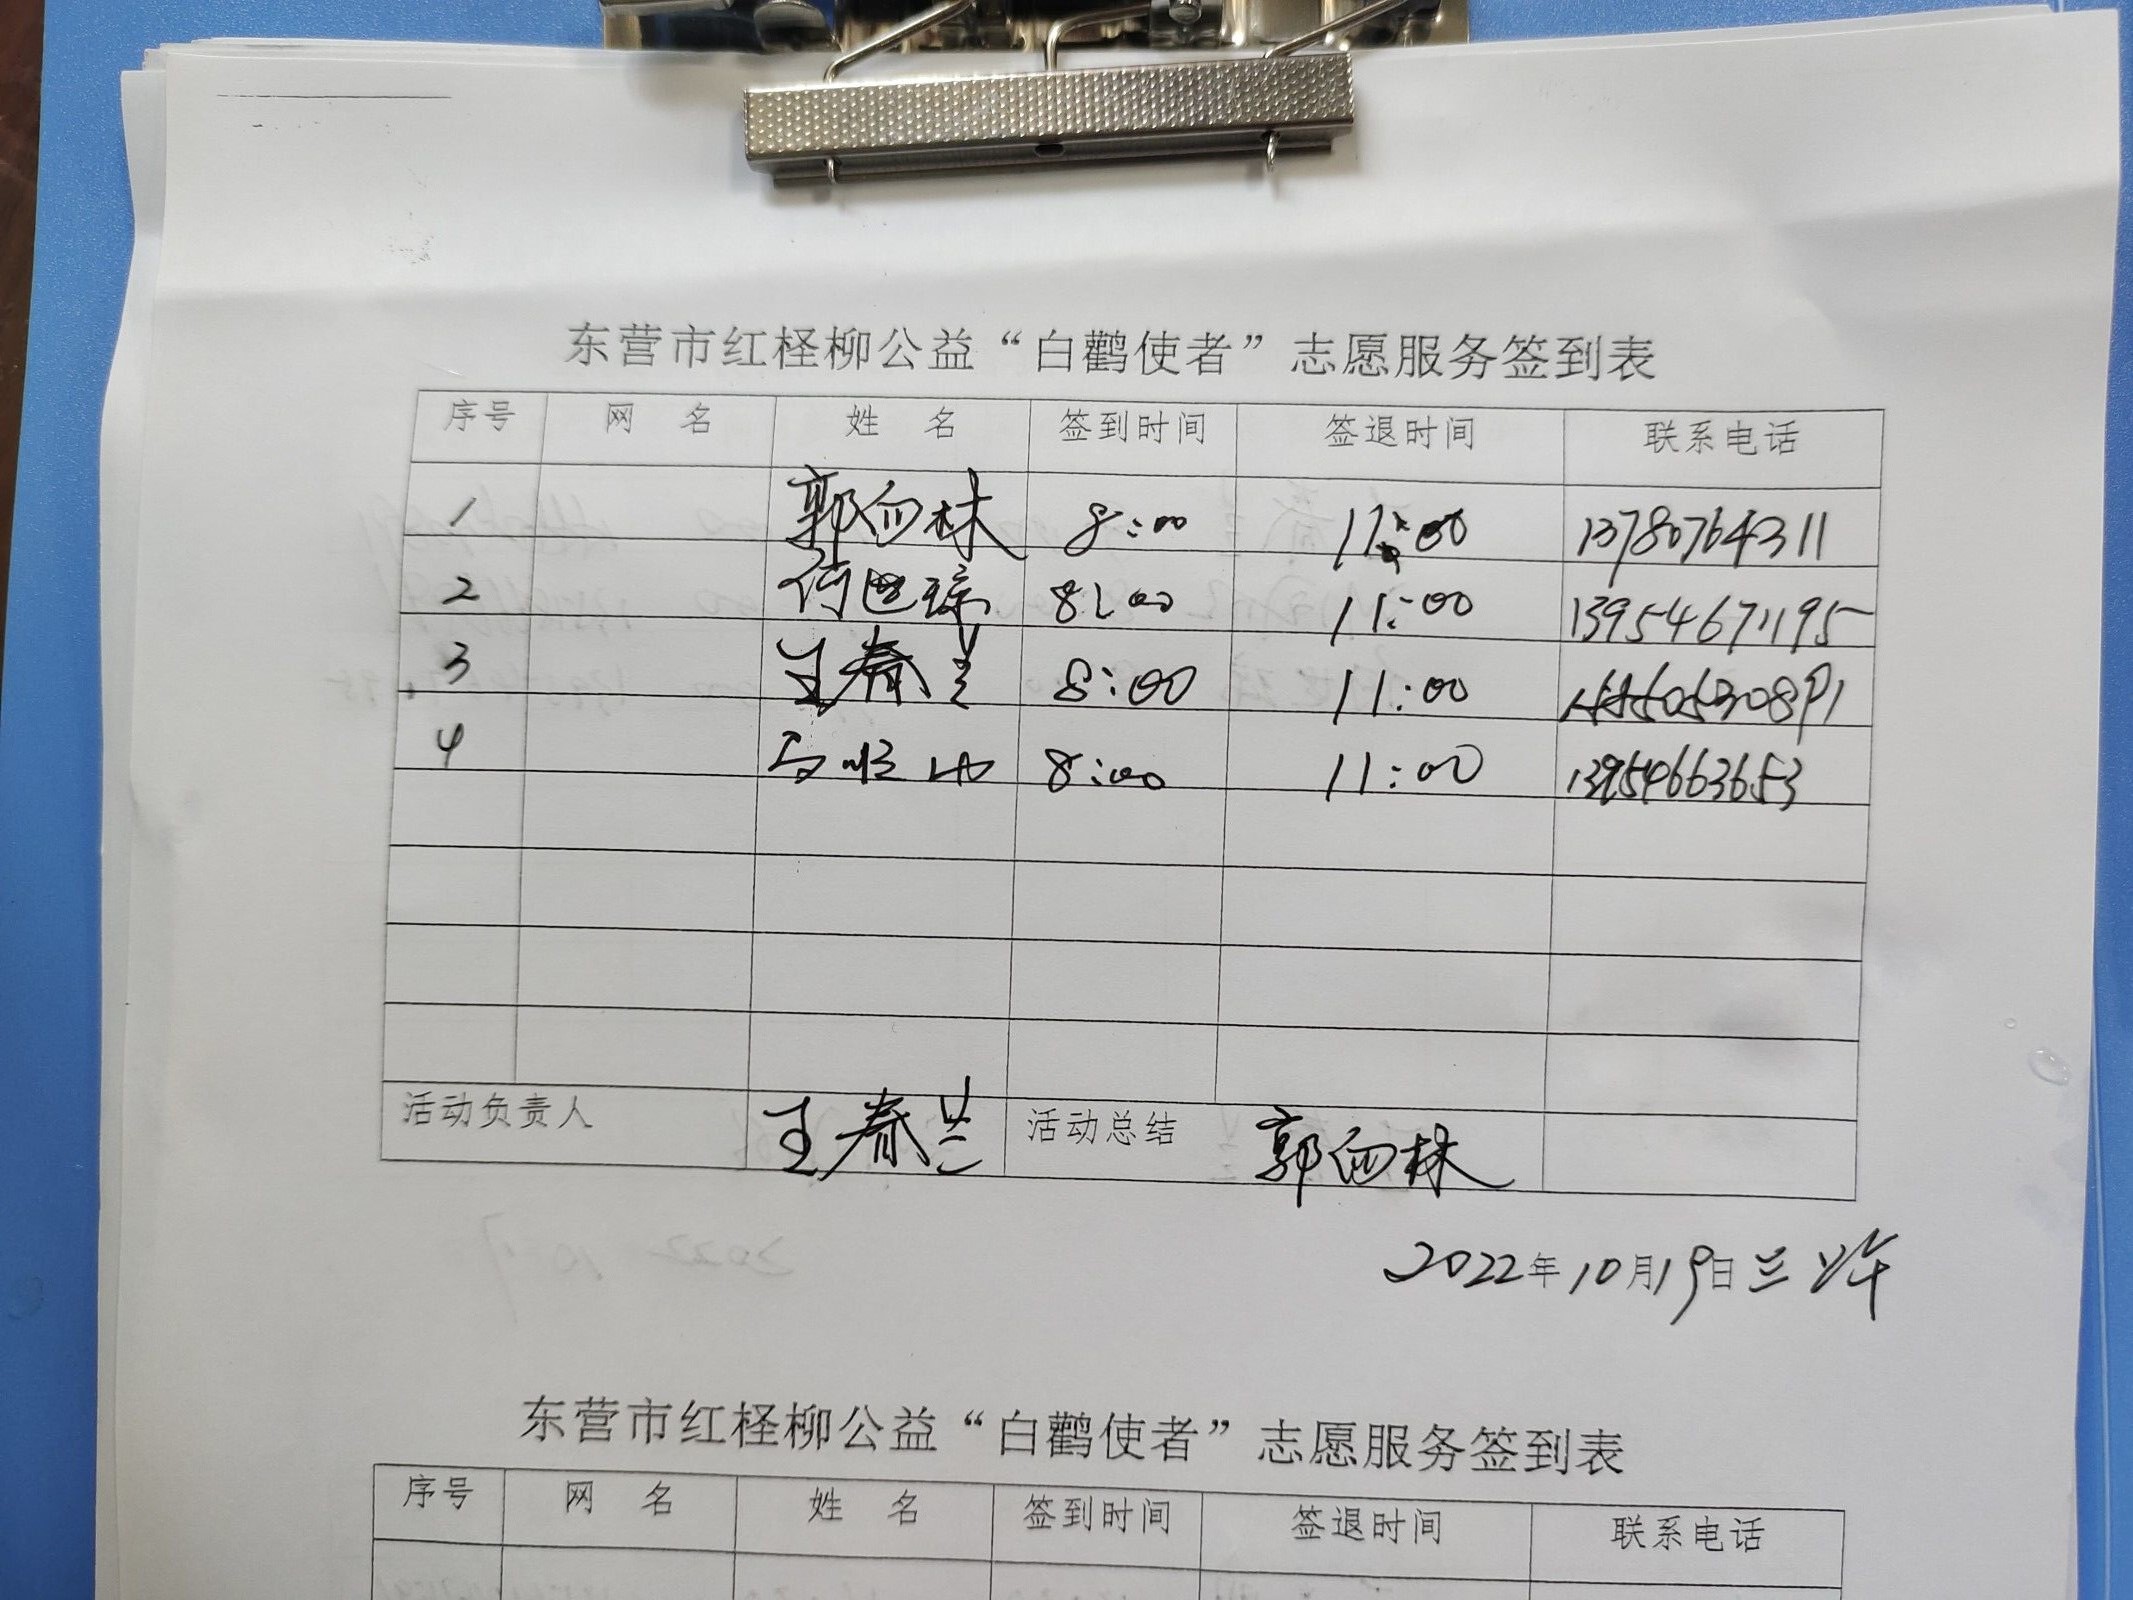 东营市红柽柳公益“白鹳使者”志愿服务签到表
序号 网 名 姓 名 签到时间 签退时间 联系电话
1 郭向林 8:00 11:00 13780764311
2 8:00 11:00 13954671195
3 王春兰 8:00 11:00
4 8:00 11:00 13954663653
活动负责人 王春兰 活动总结 郭向林
2022年10月19日 三 上午
东营市红柽柳公益“白鹳使者”志愿服务签到表
序号 网 名 姓 名 签到时间 签退时间 联系电话